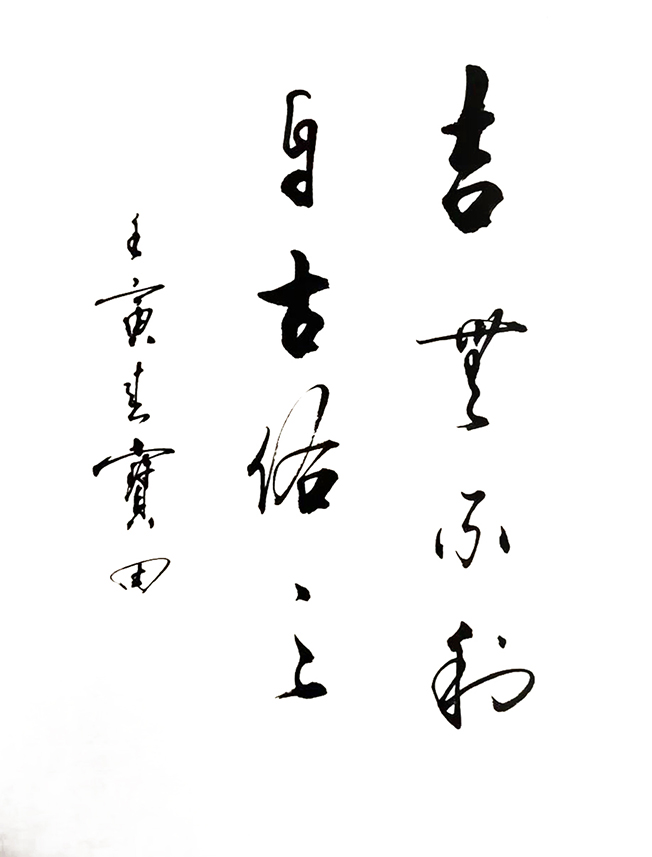 吉無不利
自古佑之
壬寅春寶